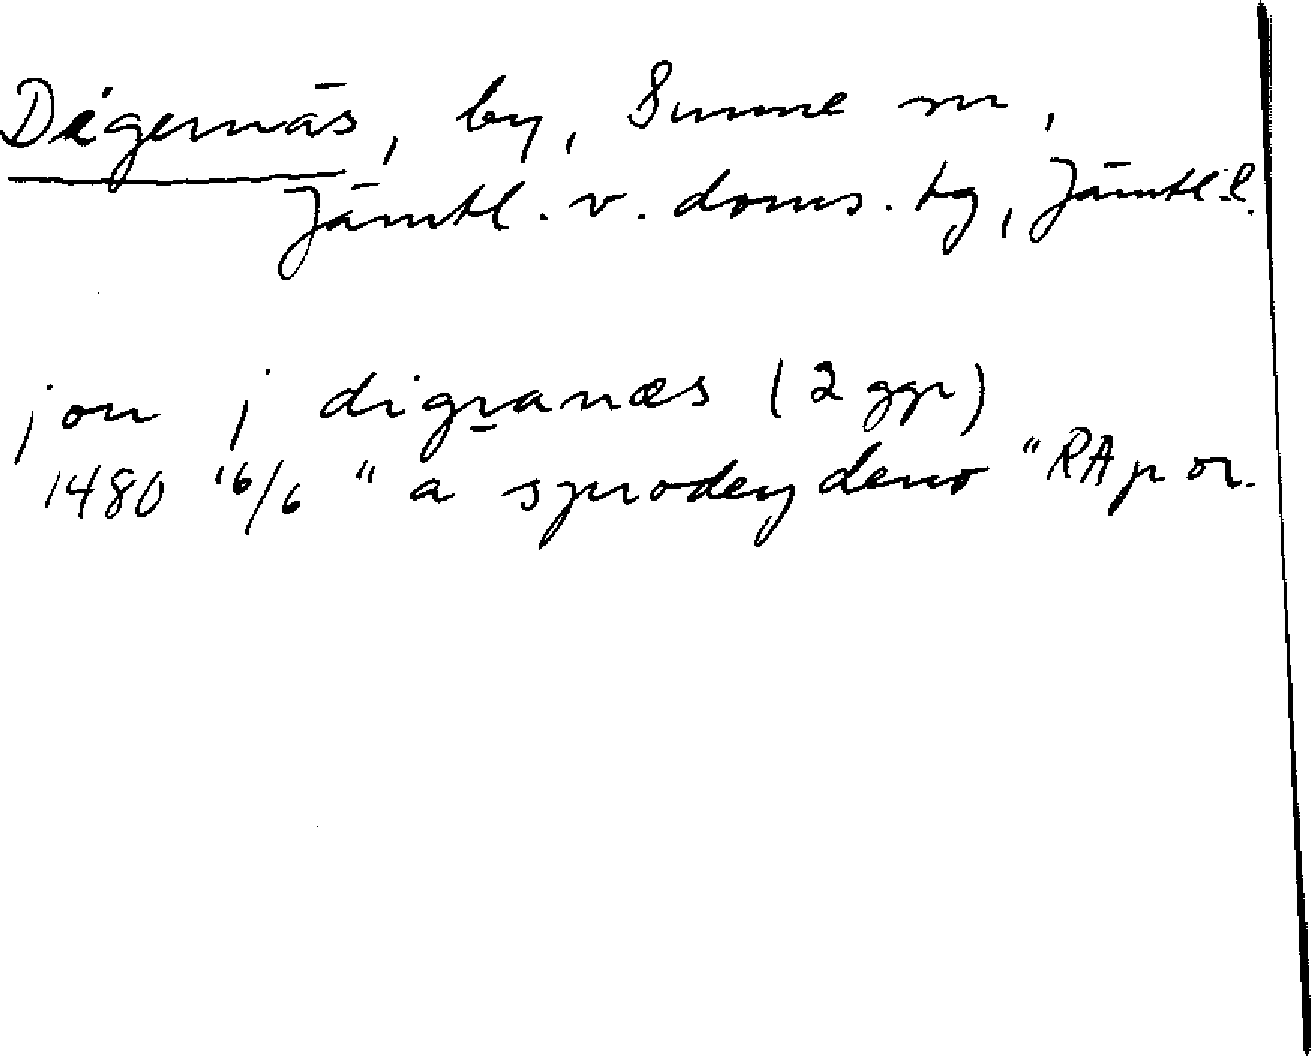 Digernäs, by, Sunne sn,
Jämtl. v. doms. tg, Jämtl. l.
jon j digranæs (2 ggr)
1480 16/6 "a sprodeydeno" RAp or.